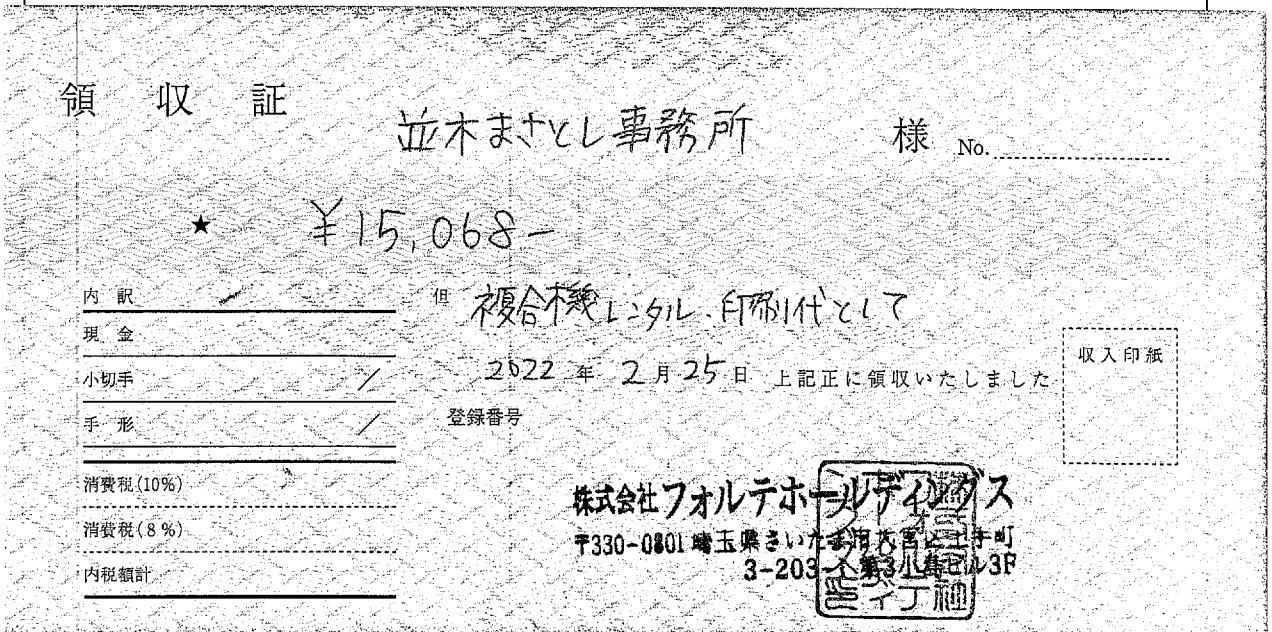 領収証
並木まさとし事務所 様 No.
★ ¥15,068-
内訳
現金
小切手
手形
消費税(10%)
消費税(8%)
内税額計
但 複合機レンタル・印刷代として
2022年2月25日 上記正に領収いたしました
登録番号
収入印紙
株式会社フォルテホールディングス
〒330-0801 埼玉県さいたま市大宮区土手町
3-203-1 第3小島ビル3F